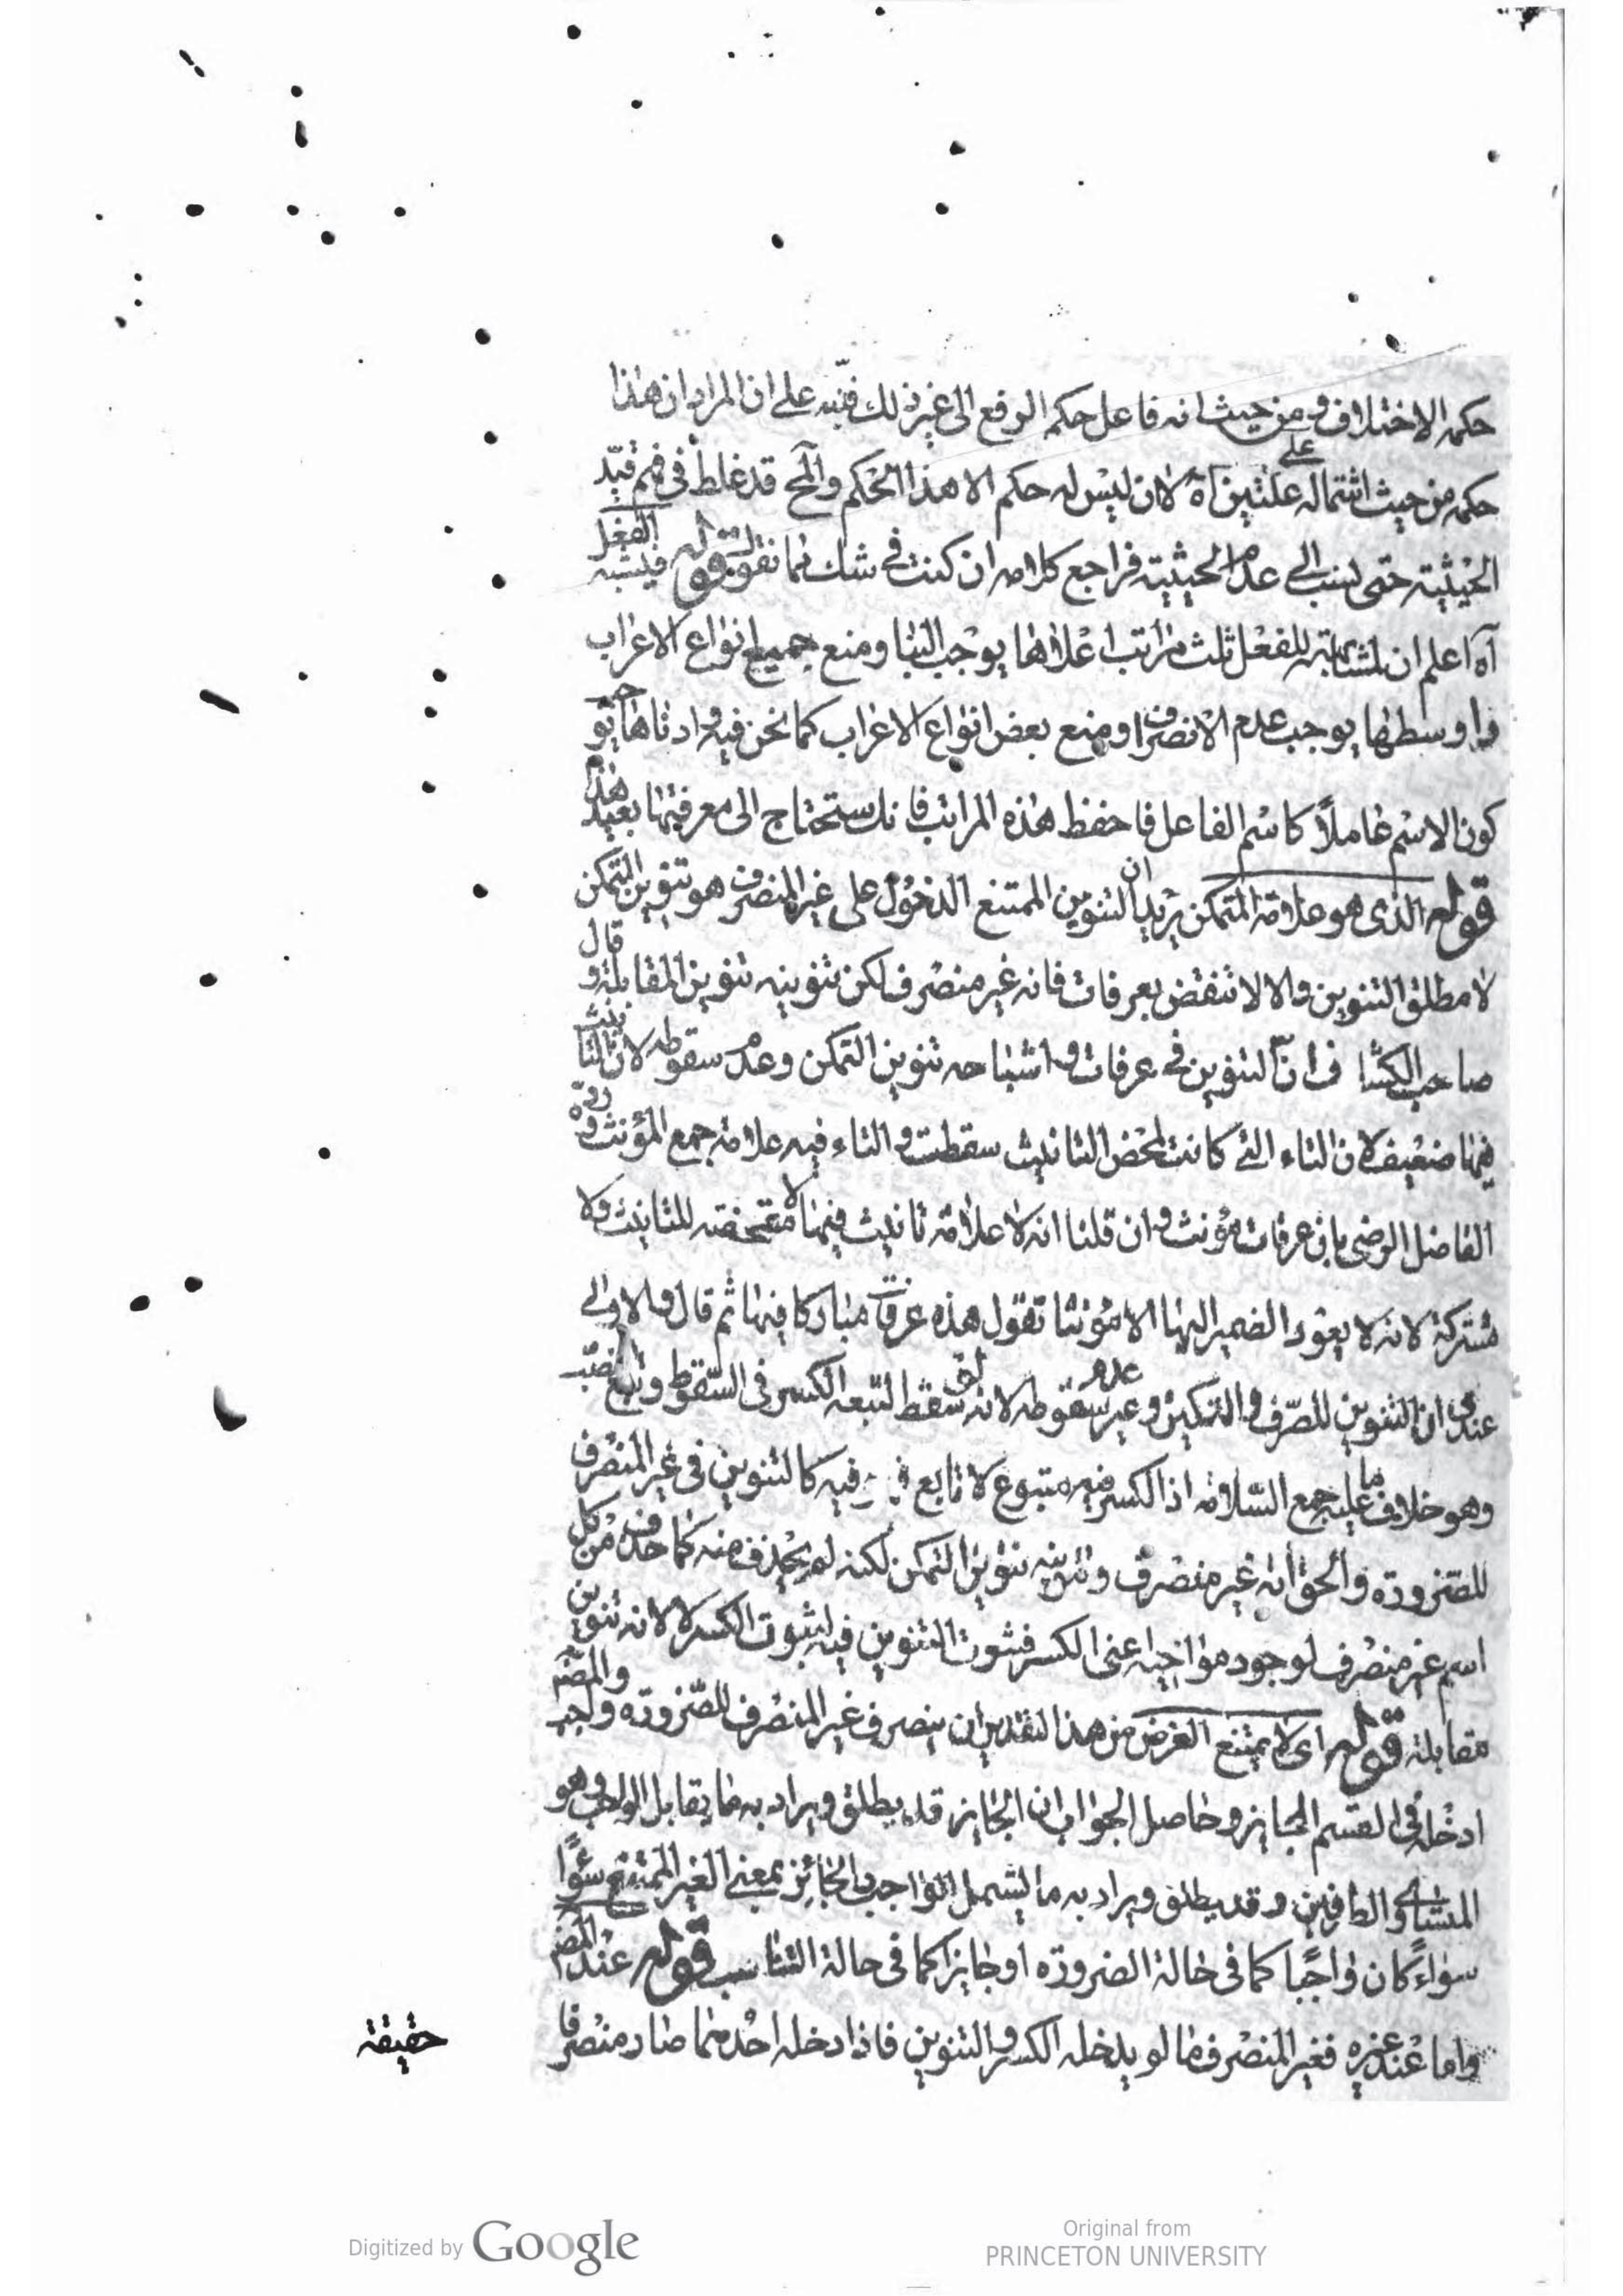 حكمه الاختلاف ومن حيث انه فاعل حكمه الرفع الى غير ذلك فنبّه على ان المراد ان هذا
حكمه من حيث اشتماله على علتين آه لا ان ليس له حكم الا هذا الحكم والمح قد غلط في فهم قيد
الحيثية حتى نسب الى عدم الحيثية فراجع كلامه ان كنت في شك مما نقول قوله فيشبه الفعل
آه اعلم ان لمشابهته للفعل ثلث مراتب اعلاها يوجب البنا ومنع جميع انواع الاعراب
واوسطها يوجب عدم الانصراف ومنع بعض انواع الاعراب كما نحن فيه وادناها يوجب
كون الاسم عاملاً كاسم الفاعل فاحفظ هذه المراتب فانك ستحتاج الى معرفتها بعيد هذا
قوله الذى هو علامة التمكن يريد ان التنوين الممتنع الدخول على غير المنصرف هو تنوين التمكن
لا مطلق التنوين والا لانتقض بعرفات فانه غير منصرف لكن تنوينه تنوين المقابلة وقال
صاحب الكشاف ان التنوين في عرفات واشباهه تنوين التمكن وعدم سقوطه لان التانيث
فيها ضعيف لان التاء التى كانت لمحض التانيث سقطت والتاء فيه علامة جمع المؤنث وردّه
الفاضل الرضى بان عرفات مؤنث وان قلنا انه لا علامة تانيث فيها لا متمحضة للتانيث ولا
مشتركة لانه لا يعود الضمير اليها الا مؤنثا تقول هذه عرفات مباركا فيها ثم قال والاولى
عندى ان التنوين للصرف والتمكين وعدم سقوطه لانه لو سقط لتبعه الكسر في السقوط وتبع النصب
وهو خلاف ما عليه جمع السلامة اذ الكسر فيه متبوع لا تابع فهو فيه كالتنوين في غير المنصرف
للضرورة والحق انه غير منصرف وتنوينه تنوين التمكن لكنه لم يحذف منه كما حذف من كل
اسم غير منصرف لوجود مواخيه اعنى الكسر فثبوت التنوين فيه لثبوت الكسر لا لانه تنوين
مقابلة قوله اى لا يمتنع الغرض من هذا التقدير ان ينصرف غير المنصرف للضرورة واجب والمصنّف
ادخله في القسم الجايز وحاصل الجواب ان الجايز قد يطلق ويراد به ما يقابل الواجب وهو
المتساوى الطرفين وقد يطلق ويراد به ما يشمل الواجب والجائز بمعنى الغير الممتنع سواءً
سواءً كان واجبًا كما في حالة الضرورة او جايزا كما في حالة التناسب قوله عند المصنف
واما عند غيره فغير المنصرف ما لو يدخله الكسر والتنوين فاذا دخله احدهما صار منصرفا
حقيقة